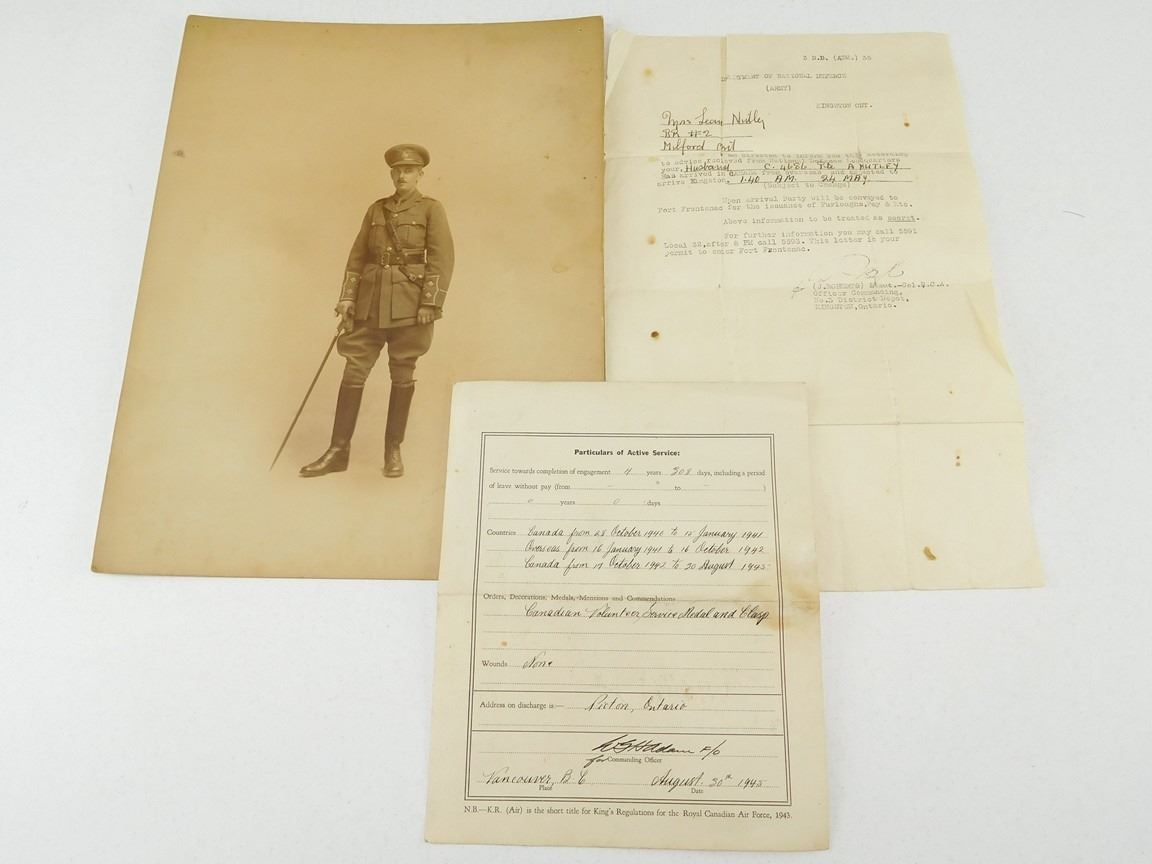 3 D.D. (ARM.) 35
DEPARTMENT OF NATIONAL DEFENCE
(ARMY)
KINGSTON ONT.
Mrs Leon Nutley
RR #2
Milford Ont
Am directed to inform you that according
to advice recieved from National Defence Headquarters
your, Husband C. 4686 Pte A NUTLEY
Has arrived in CANADA from overseas and expected to
arrive Kingston, 1.40 AM. 24 MAY.
(Subject to Change)
Upon arrival Party will be conveyed to
Fort Frontenac for the issuance of Furloughs, Pay & Etc.
Above information to be treated as secret.
For further information you may call 5591
Local 32, after 8 PM call 5593. This letter is your
permit to enter Fort Frontenac.
for (J.ROBERTS) Lieut.-Col. R.C.A.
Officer Commanding,
No.3 District Depot,
KINGSTON, Ontario.
Particulars of Active Service:
Service towards completion of engagement 4 years 308 days, including a period
of leave without pay (from — to — )
0 years 0 days
Countries Canada from 28 October 1940 to 15 January 1941
Overseas from 16 January 1941 to 16 October 1942
Canada from 17 October 1942 to 30 August 1945
Orders, Decorations, Medals, Mentions and Commendations
Canadian Volunteer Service Medal and Clasp
Wounds None
Address on discharge is:— Picton, Ontario
F/O
for Commanding Officer
Vancouver, B C August 30th 1945
Place Date
N.B.—K.R. (Air) is the short title for King's Regulations for the Royal Canadian Air Force, 1943.